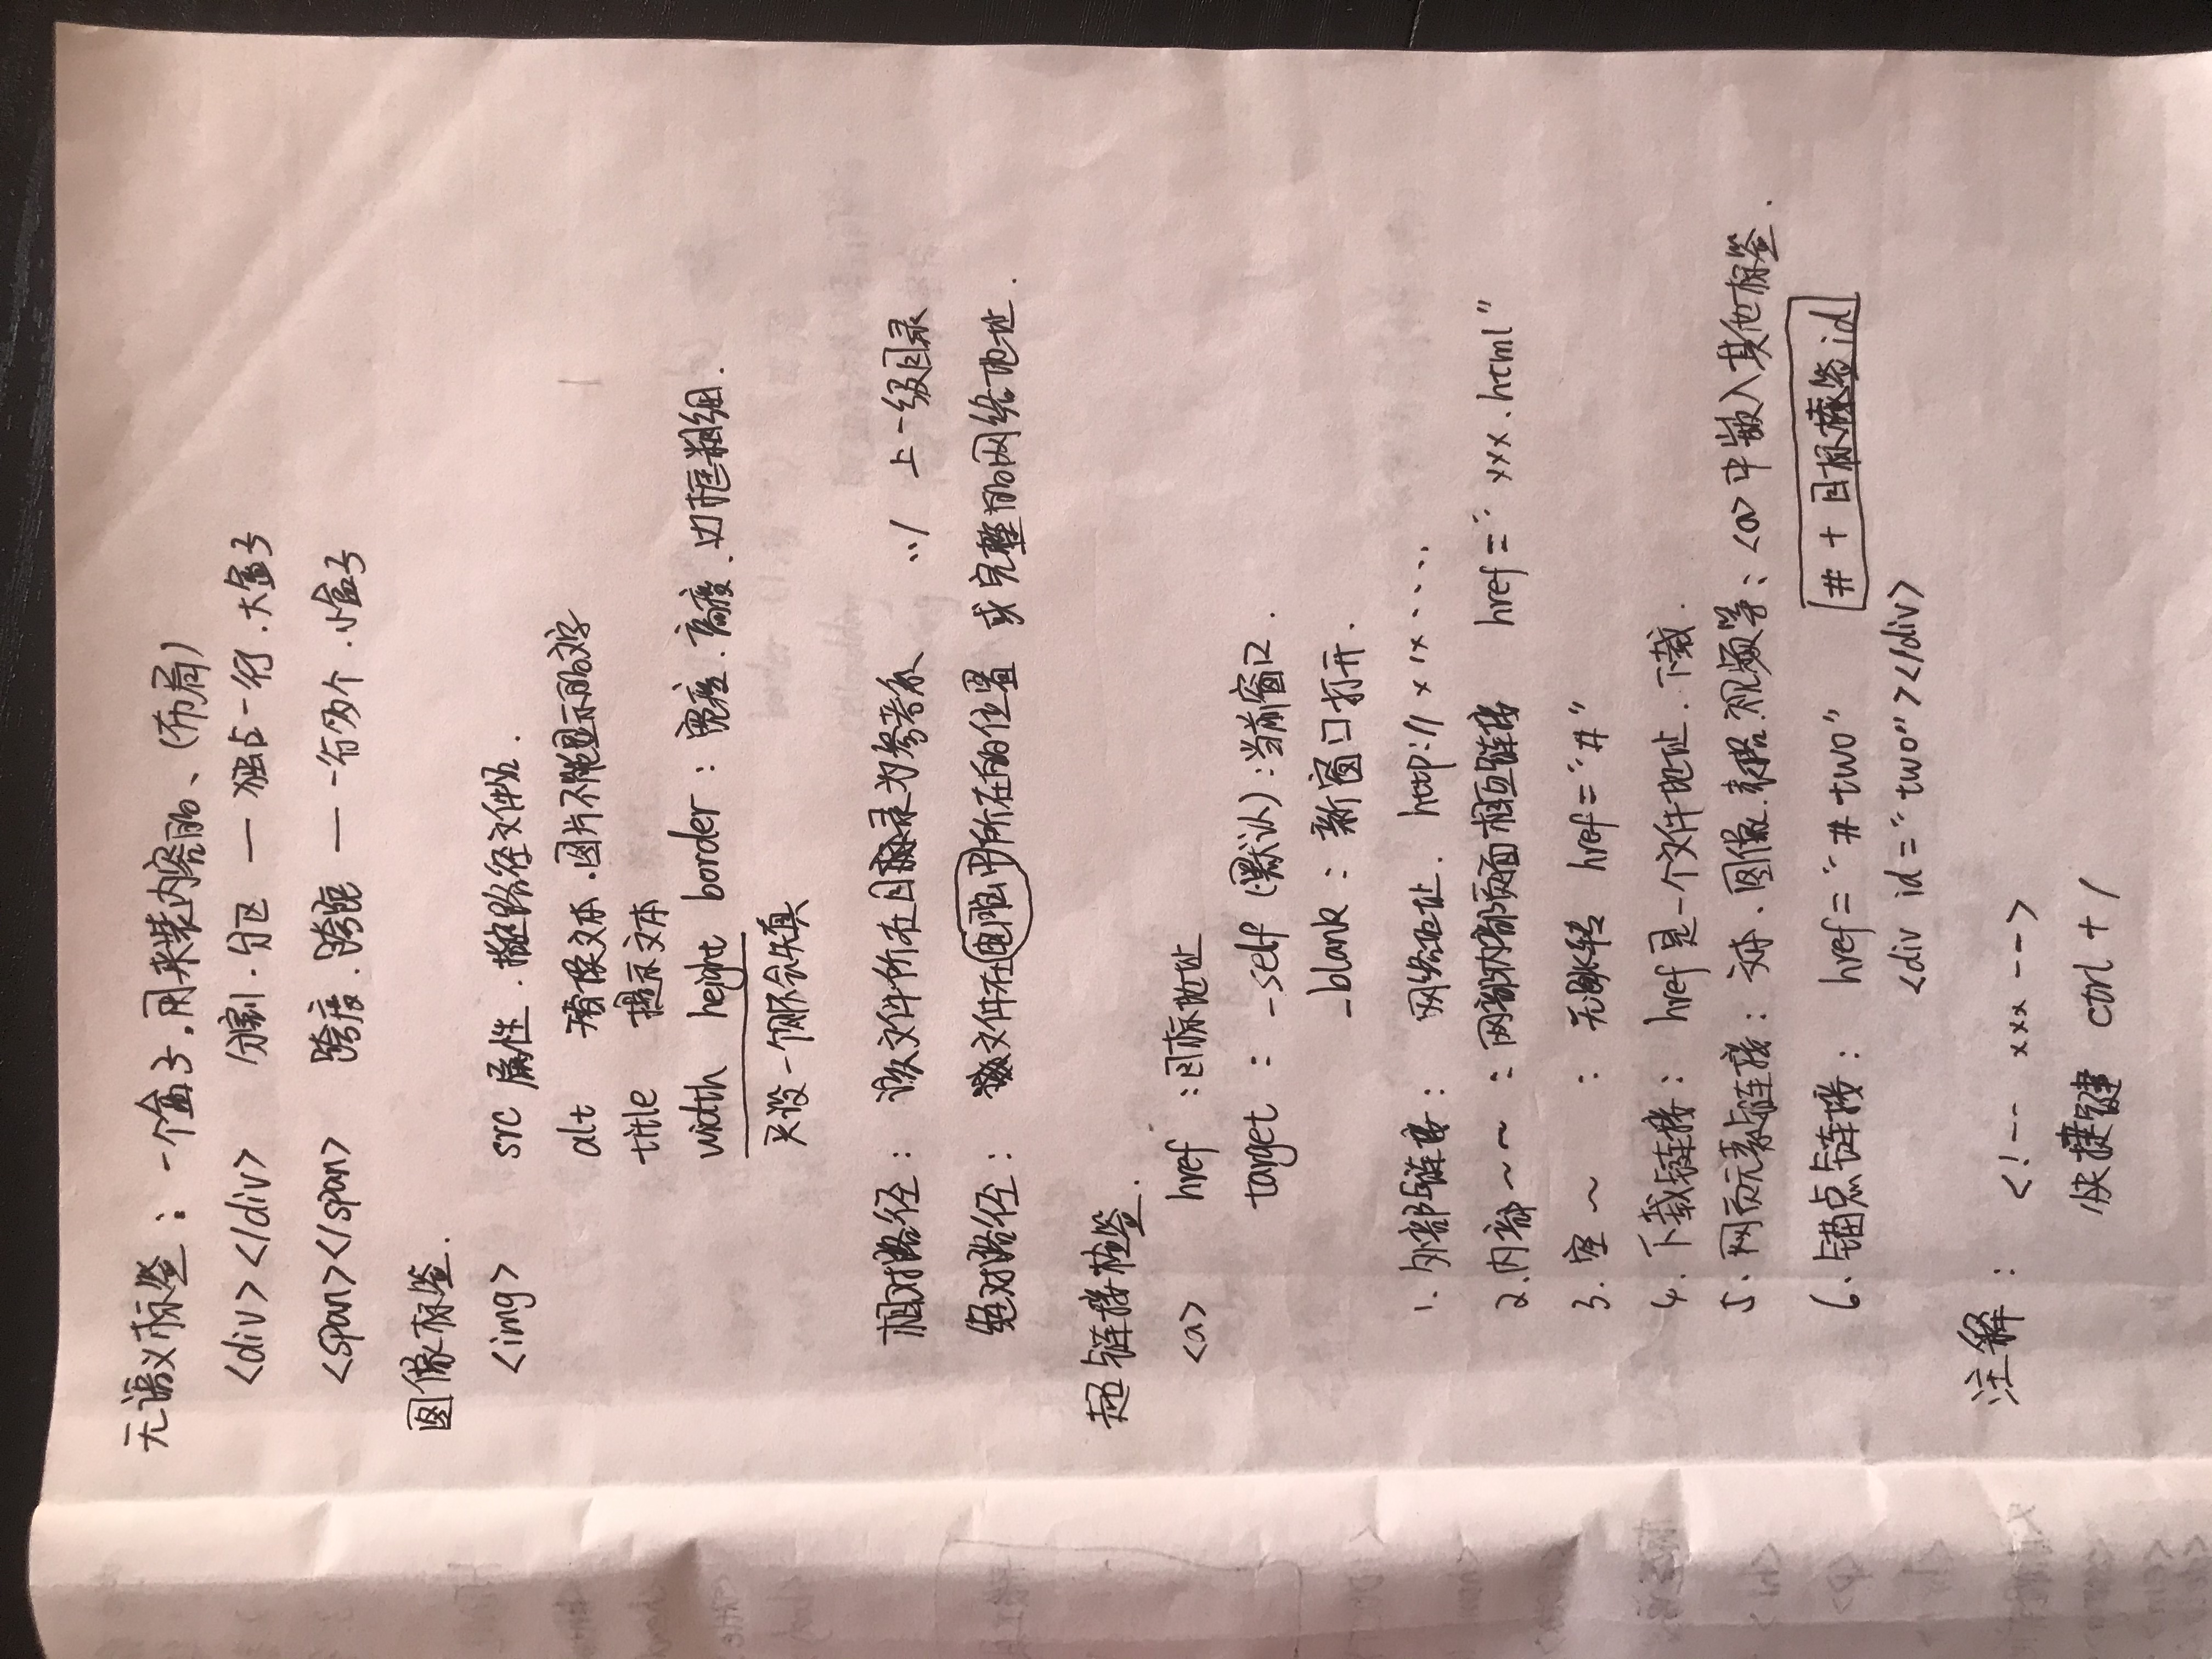 无语义标签：一个盒子.用来装内容的、(布局)
<div></div> 分割.分区 — 独占一行.大盒子
<span></span> 跨度.跨距 — 一行多个.小盒子
图像标签.
<img> src 属性.指定路径文件名.
alt 替换文本.图片不能显示的文字
title 提示文本
width height border：宽度.高度.边框粗细.
只设一个则不会失真
相对路径：该文件所在目录为参考系 ../ 上一级目录
绝对路径：文件在电脑中所在的位置 或完整的网络地址.
超链接标签.
<a> href：目标地址
target：_self (默认)：当前窗口.
_blank：新窗口打开.
1.外部链接：网络地址. http://xx....
2.内部~~：网部内部页面相互链接 href="xxx.html"
3.空~：无跳转 href="#"
4.下载链接：href是一个文件地址.下载.
5.网页元素链接：文本.图像.表格.视频等；<a>中嵌入其他标签.
6.锚点链接：href="#two" # + 目标标签id
<div id="two"></div>
注释：<!-- xxx -->
快捷键 ctrl + /